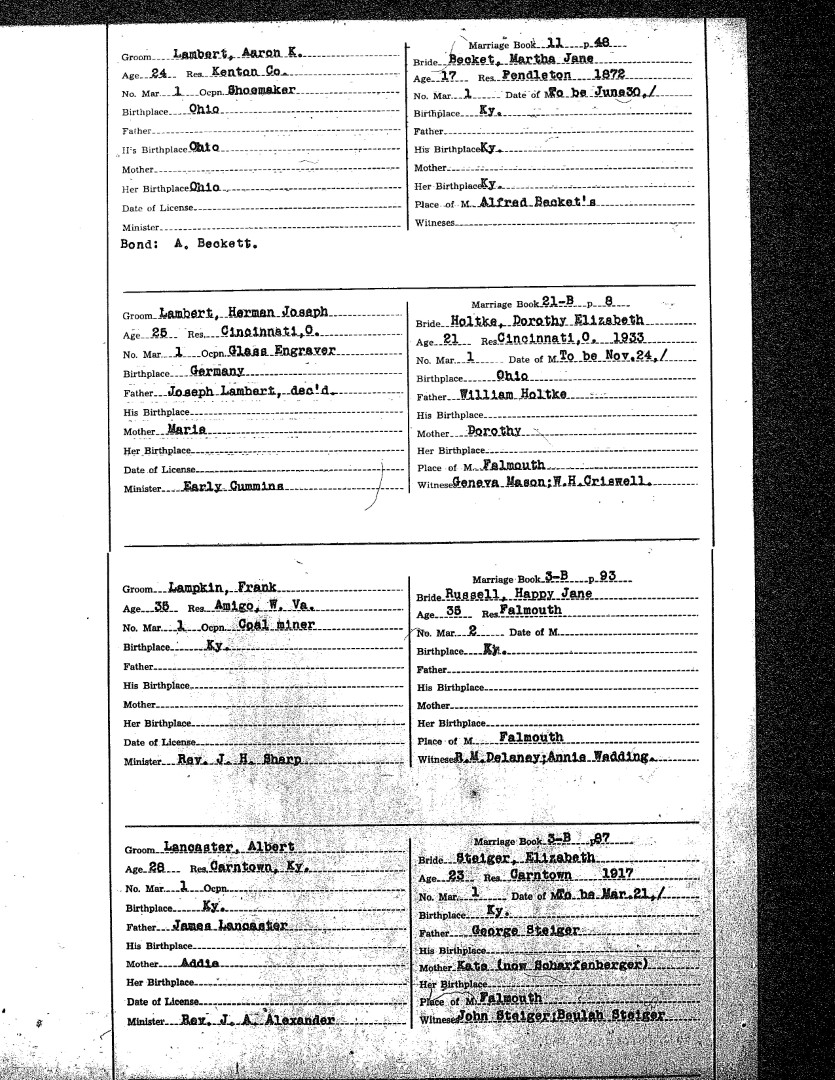 Groom Lambert, Aaron K.
Age 24 Res. Kenton Co.
No. Mar. 1 Ocpn. Shoemaker
Birthplace Ohio
Father
His Birthplace Ohio
Mother
Her Birthplace Ohio
Date of License
Minister
Bond: A. Beckett.
Marriage Book 11 p. 48
Bride Becket, Martha Jane
Age 17 Res. Pendleton 1872
No. Mar. 1 Date of M. To be June30,/
Birthplace Ky.
Father
His Birthplace Ky.
Mother
Her Birthplace Ky.
Place of M. Alfred Becket's
Witneses
Groom Lambert, Herman Joseph
Age 25 Res. Cincinnati,O.
No. Mar. 1 Ocpn. Glass Engraver
Birthplace Germany
Father Joseph Lambert, dec'd.
His Birthplace
Mother Maria
Her Birthplace
Date of License
Minister Early Cummins
Marriage Book 21-B p. 8
Bride Holtke, Dorothy Elizabeth
Age 21 Res Cincinnati,O. 1933
No. Mar. 1 Date of M. To be Nov.24,/
Birthplace Ohio
Father William Holtke
His Birthplace
Mother Dorothy
Her Birthplace
Place of M. Falmouth
Witneses Geneva Mason;W.H.Criswell.
Groom Lampkin, Frank
Age 35 Res. Amigo, W. Va.
No. Mar. 1 Ocpn. Coal miner
Birthplace Ky.
Father
His Birthplace
Mother
Her Birthplace
Date of License
Minister Rev. J. H. Sharp
Marriage Book 3-B p. 93
Bride Russell, Happy Jane
Age 35 Res. Falmouth
No. Mar. 2 Date of M.
Birthplace Ky.
Father
His Birthplace
Mother
Her Birthplace
Place of M. Falmouth
Witneses R.M.Delaney;Annie Wadding.
Groom Lancaster, Albert
Age 28 Res. Carntown, Ky.
No. Mar. 1 Ocpn.
Birthplace Ky.
Father James Lancaster
His Birthplace
Mother Addie
Her Birthplace
Date of License
Minister Rev. J. A. Alexander
Marriage Book 3-B p. 87
Bride Steiger, Elizabeth
Age 23 Res. Carntown 1917
No. Mar. 1 Date of M. To be Mar.21,/
Birthplace Ky.
Father George Steiger
His Birthplace
Mother Kate (now Scharfenberger)
Her Birthplace
Place of M. Falmouth
Witneses John Steiger;Beulah Steiger